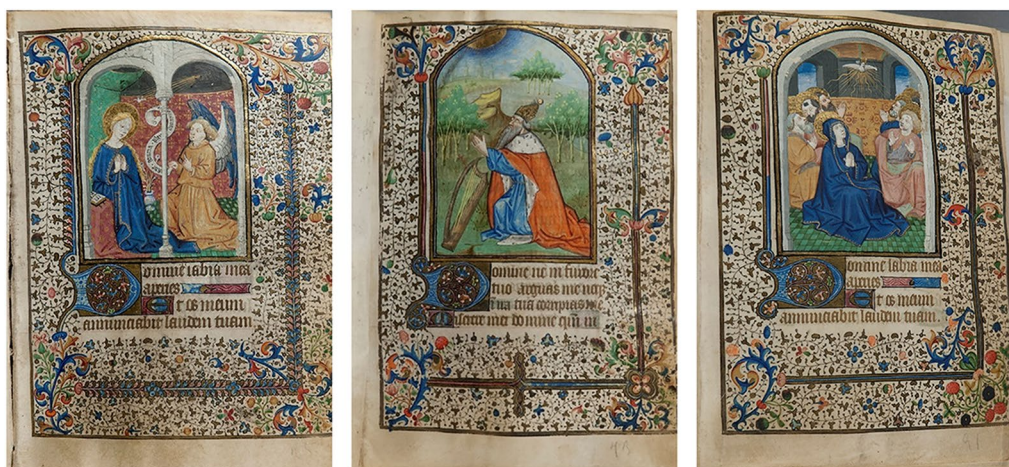 Domine labia mea
aperies
Et os meum
annunciabit laudem tuam.
Domine ne in furore
tuo arguas me neq
in ira tua corripias me
Miserere mei domine qm in
Domine labia mea
aperies
Et os meum
annunciabit laudem tuam.